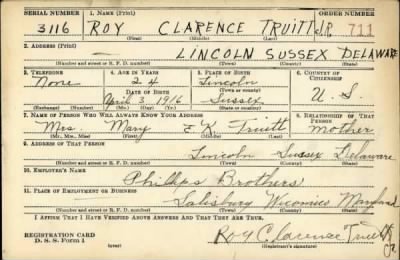 SERIAL NUMBER 1. NAME (Print) ORDER NUMBER
3116 ROY CLARENCE TRUITT JR. 711
(First) (Middle) (Last)
2. ADDRESS (Print)
— LINCOLN SUSSEX DELAWARE
(Number and street or R. F. D. number) (Town) (County) (State)
3. TELEPHONE 4. AGE IN YEARS 5. PLACE OF BIRTH 6. COUNTRY OF CITIZENSHIP
None 24 Lincoln
DATE OF BIRTH (Town or county)
April 3 1916 Sussex U. S.
(Exchange) (Number) (Mo.) (Day) (Yr.) (State or country)
7. NAME OF PERSON WHO WILL ALWAYS KNOW YOUR ADDRESS 8. RELATIONSHIP OF THAT PERSON
Mrs. Mary E. K. Truitt mother
(Mr., Mrs., Miss) (First) (Middle) (Last)
9. ADDRESS OF THAT PERSON
Lincoln Sussex Delaware
(Number and street or R. F. D. number) (Town) (County) (State)
10. EMPLOYER'S NAME
Phillips Brothers
11. PLACE OF EMPLOYMENT OR BUSINESS
Salisbury Wicomico Maryland
(Number and street or R. F. D. number) (Town) (County) (State)
I AFFIRM THAT I HAVE VERIFIED ABOVE ANSWERS AND THAT THEY ARE TRUE.
REGISTRATION CARD
D. S. S. Form 1
Roy Clarence Truitt Jr.
(Registrant's signature)